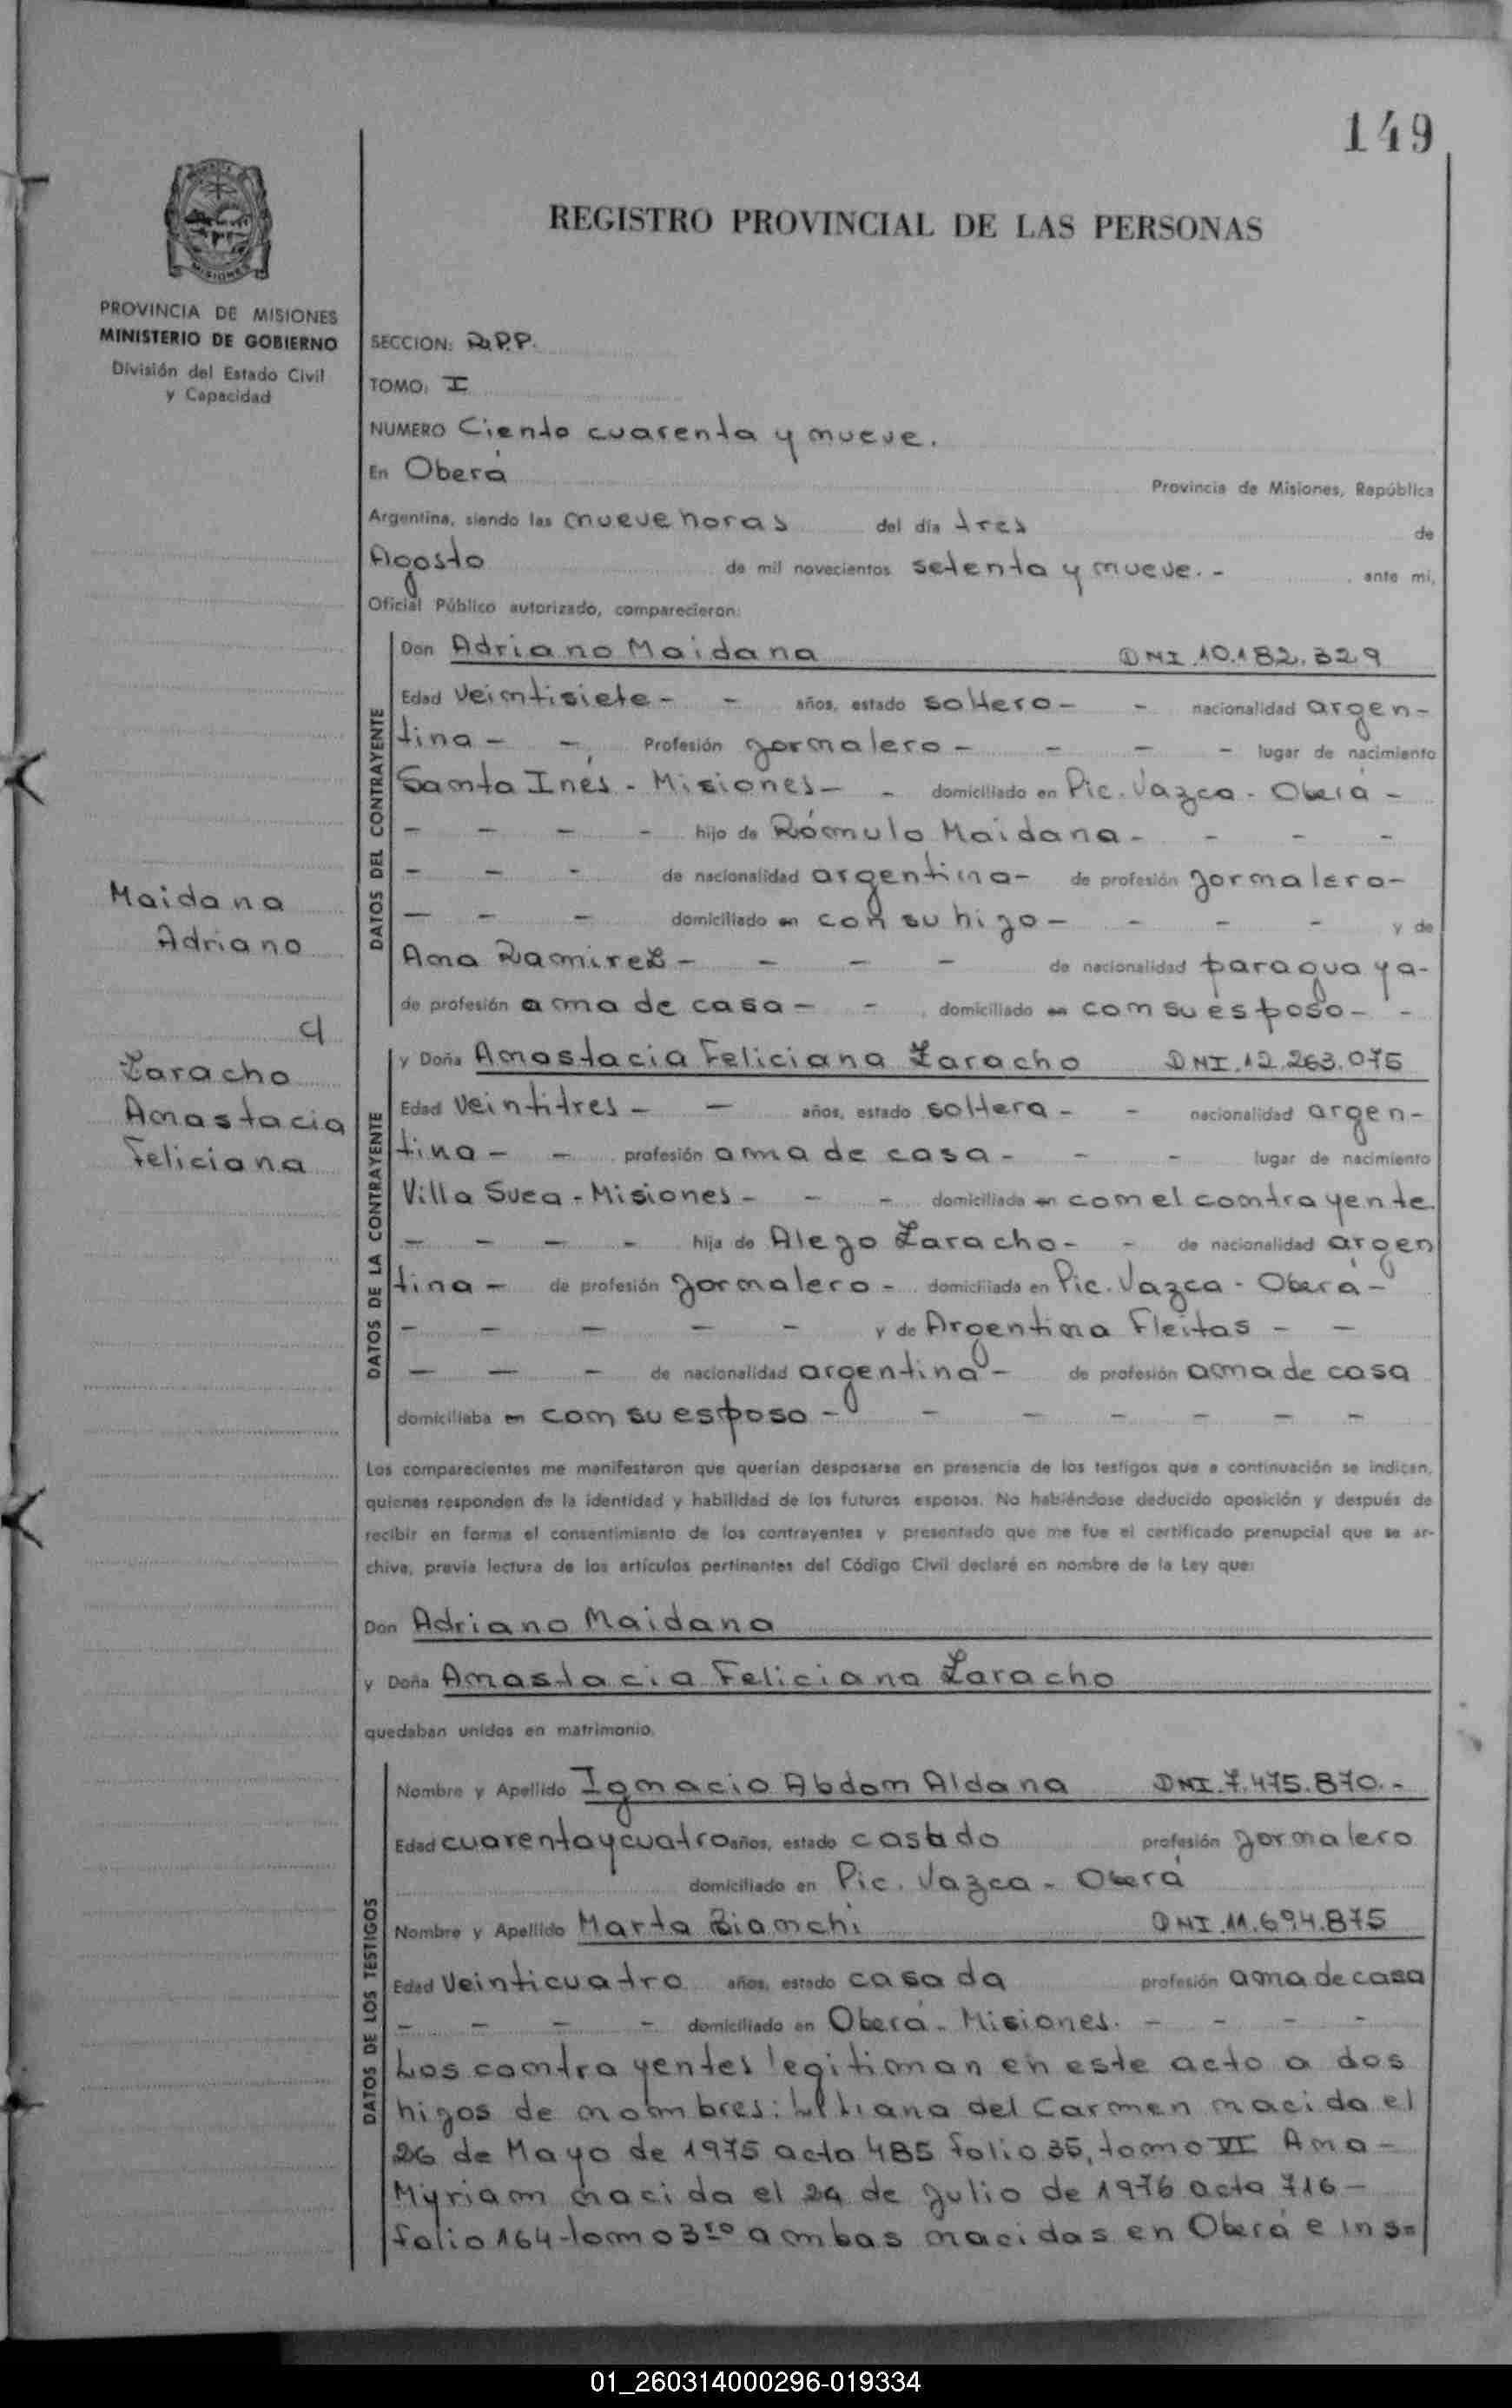 149
REGISTRO PROVINCIAL DE LAS PERSONAS
MISIONES
PROVINCIA DE MISIONES
MINISTERIO DE GOBIERNO
División del Estado Civil
y Capacidad
SECCION: R.P.P.
TOMO: I
NUMERO Ciento cuarenta y nueve.
En Oberá Provincia de Misiones, República
Argentina, siendo las nueve horas del día tres de
Agosto de mil novecientos setenta y nueve. - ante mi,
Oficial Público autorizado, comparecieron:
DATOS DEL CONTRAYENTE
Don Adriano Maidana DNI 10.182.329
Edad Veintisiete - - años, estado soltero - - nacionalidad argen-
tina - - Profesión jornalero - - - - lugar de nacimiento
Santa Inés - Misiones - - domiciliado en Pic. Vazca - Oberá -
- - - - hijo de Rómulo Maidana - - - -
- - - de nacionalidad argentina - de profesión jornalero -
- - - domiciliado en con su hijo - - - - y de
Ana Ramirez - - - - de nacionalidad paraguaya -
de profesión ama de casa - - domiciliado en con su esposo - -
Maidana
Adriano
c/
Laracho
Anastacia
Feliciana
DATOS DE LA CONTRAYENTE
y Doña Anastacia Feliciana Laracho DNI.12.263.075
Edad Veintitres - - años, estado soltera - - nacionalidad argen-
tina - - profesión ama de casa - - - lugar de nacimiento
Villa Svea - Misiones - - - domiciliada en con el contrayente
- - - - hija de Alejo Laracho - - de nacionalidad argen
tina - de profesión jornalero - domiciliada en Pic. Vazca - Oberá -
- - - - - y de Argentina Fleitas - -
- - - de nacionalidad argentina - de profesión ama de casa
domiciliaba en con su esposo - - - - - - -
Los comparecientes me manifestaron que querían desposarse en presencia de los testigos que a continuación se indican,
quienes responden de la identidad y habilidad de los futuros esposos. No habiéndose deducido oposición y después de
recibir en forma el consentimiento de los contrayentes y presentado que me fue el certificado prenupcial que se ar-
chiva, previa lectura de los artículos pertinentes del Código Civil declaré en nombre de la Ley que:
Don Adriano Maidana
y Doña Anastacia Feliciana Laracho
quedaban unidos en matrimonio.
DATOS DE LOS TESTIGOS
Nombre y Apellido Ignacio Abdon Aldana DNI.7.475.870.-
Edad cuarenta y cuatro años, estado casado profesión jornalero
domiciliado en Pic. Vazca - Oberá
Nombre y Apellido Marta Bianchi DNI.11.694.875
Edad Veinticuatro años, estado casada profesión ama de casa
- - - - domiciliado en Oberá - Misiones. - - - -
Los contrayentes legitiman en este acto a dos
hijos de nombres: Liliana del Carmen nacida el
26 de Mayo de 1975 acta 485 folio 35, tomo VI Ana -
Myriam nacida el 24 de Julio de 1976 acta 716 -
folio 164 - tomo 3ro ambas nacidas en Oberá e ins=
01_260314000296-019334